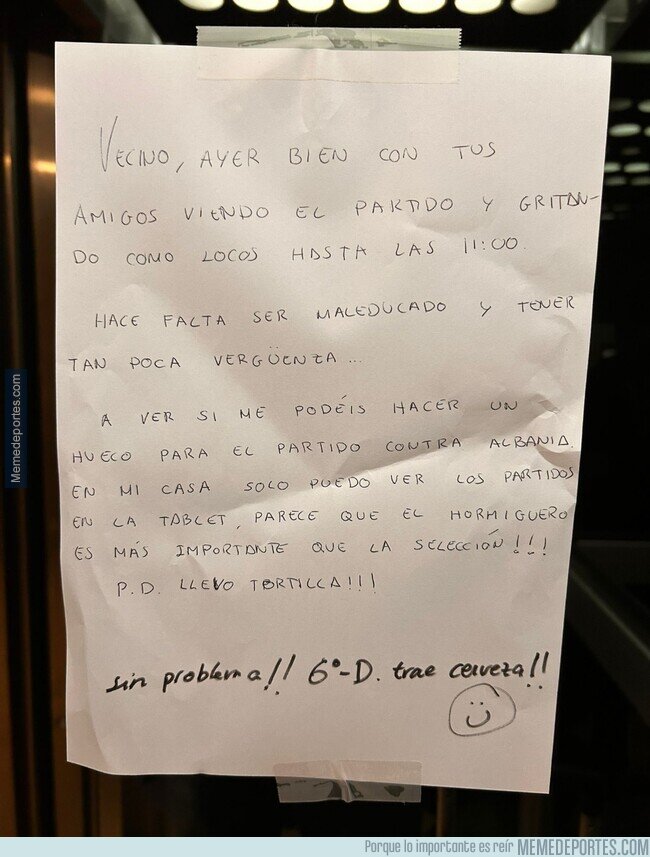 VECINO, AYER BIEN CON TUS
AMIGOS VIENDO EL PARTIDO Y GRITAN-
DO COMO LOCOS HASTA LAS 11:00.
HACE FALTA SER MALEDUCADO Y TENER
TAN POCA VERGÜENZA...
A VER SI ME PODÉIS HACER UN
HUECO PARA EL PARTIDO CONTRA ALBANIA.
EN MI CASA SOLO PUEDO VER LOS PARTIDOS
EN LA TABLET, PARECE QUE EL HORMIGUERO
ES MÁS IMPORTANTE QUE LA SELECCIÓN!!!
P.D. LLEVO TORTILLA!!!
sin problema!! 6º-D. trae cerveza!!
Memedeportes.com
Porque lo importante es reír MEMEDEPORTES.COM